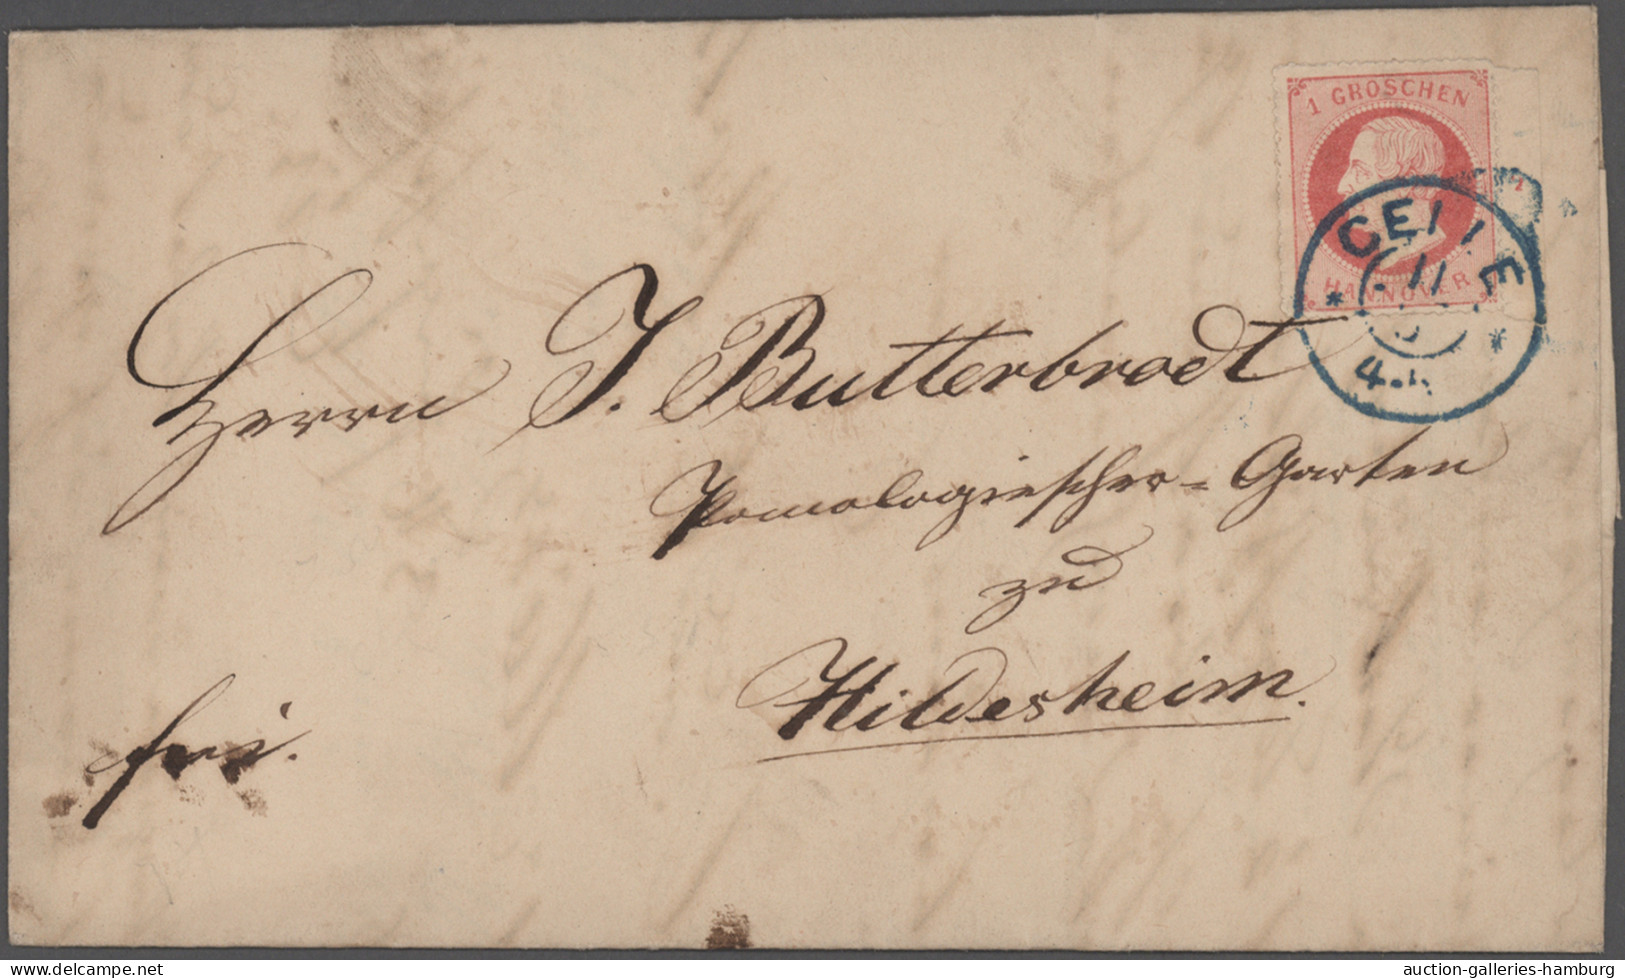 1 GROSCHEN
HANNOVER
CELLE
* 11 *
Herrn J. Butterbrodt
Pomologischer-Garten
zu
Hildesheim.
frei.
delcampe.net
auction-galleries-hamburg